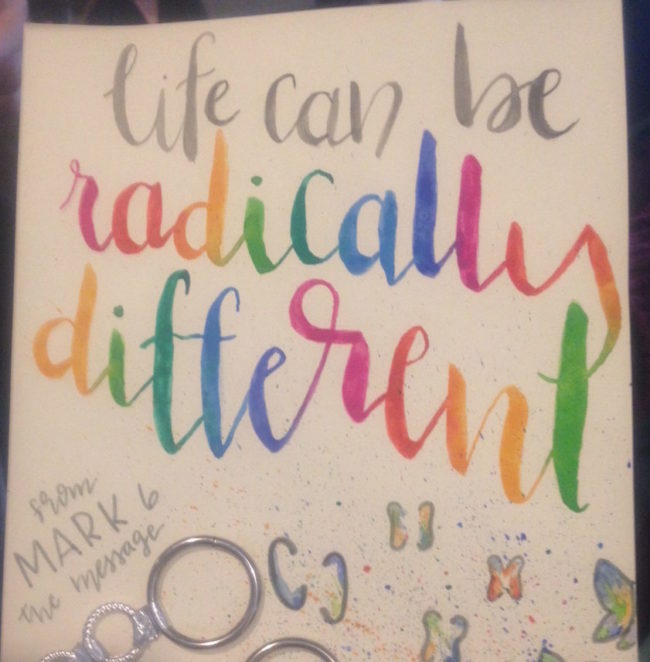 life can be
radically
different
from
MARK 6
the message